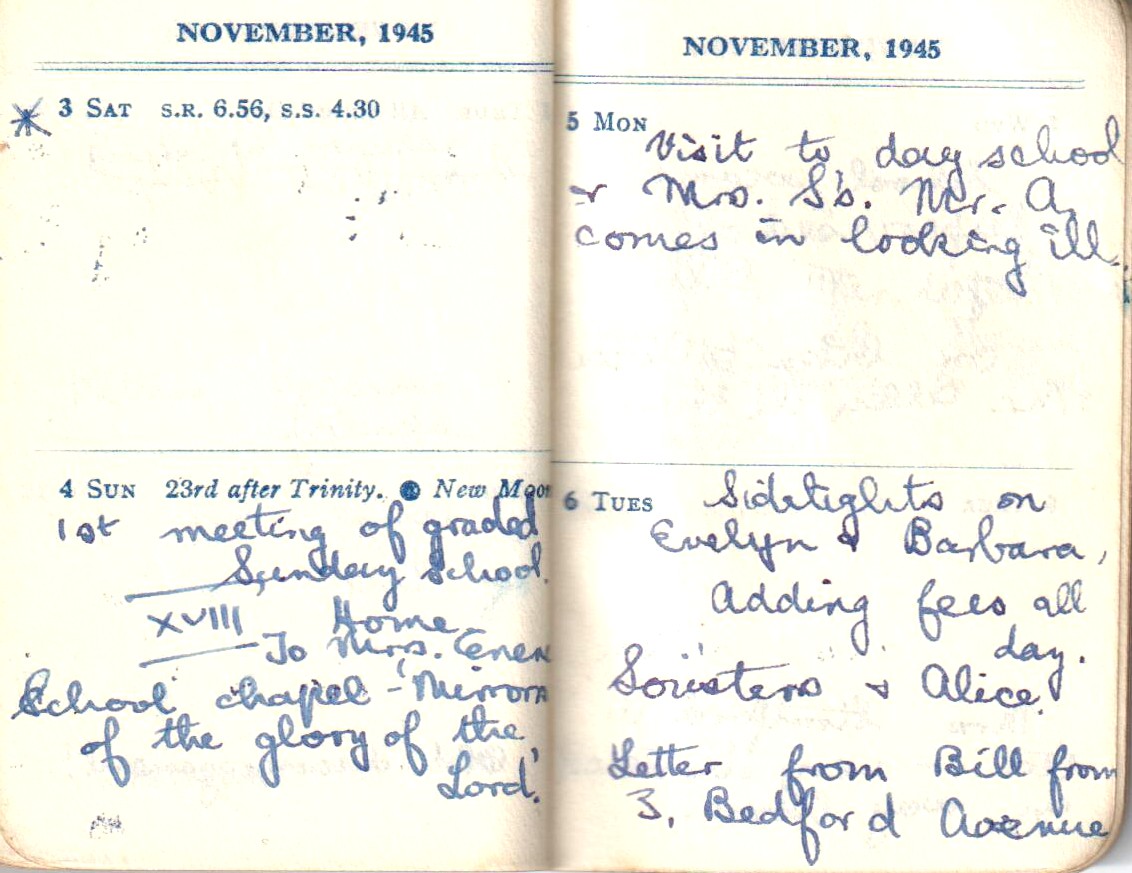 NOVEMBER, 1945
3 SAT S.R. 6.56, S.S. 4.30
4 SUN 23rd after Trinity. New Moon
1st meeting of graded
Sunday School.
XVIII Home
To Mrs.
School chapel - 'Mirrors
of the glory of the
Lord.'
NOVEMBER, 1945
5 MON
Visit to day school
& Mrs. S's. Mr. A.
comes in looking ill.
6 TUES Sidelights on
Evelyn & Barbara,
Adding fees all
day.
& Alice.
Letter from Bill from
3, Bedford Avenue